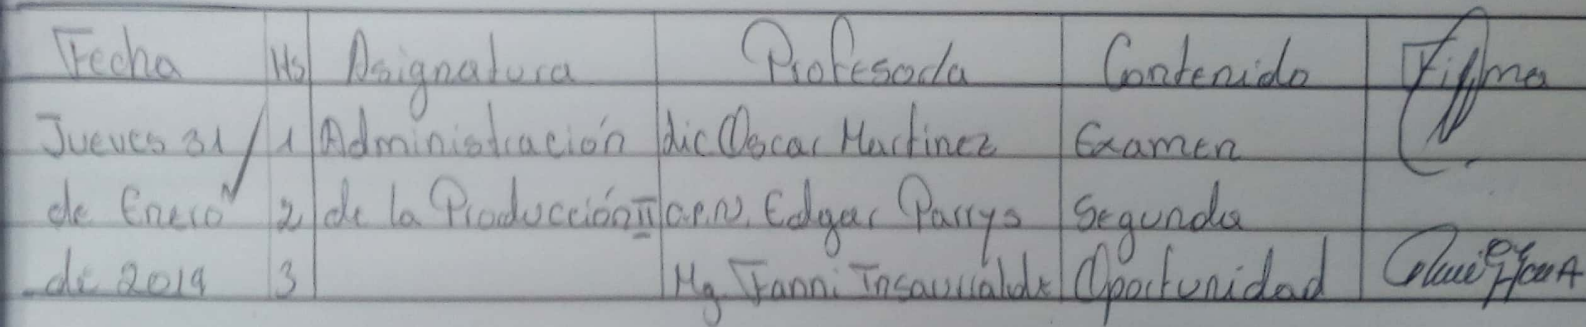 Fecha Hs Asignatura Profesor/a Contenido Firma
Jueves 31 1 Administración Lic Oscar Martinez Examen
de Enero 2 de la Producción II C.P.N. Edgar Parrys Segunda
de 2019 3 Mg Fanni Insaurralde Oportunidad